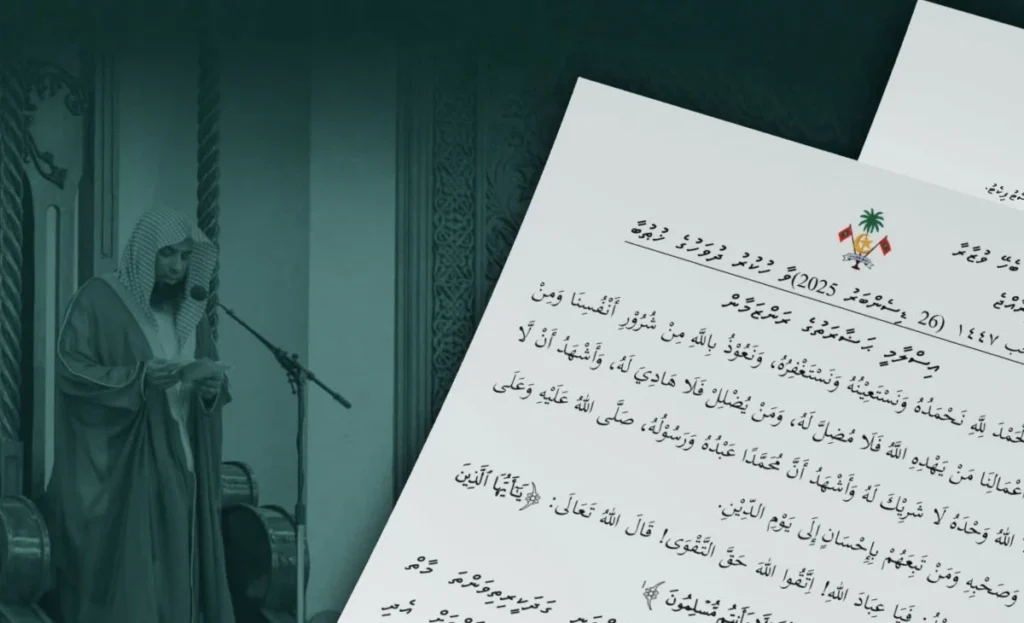 ބެހޭ ވުޒާރާ
١٤٤٧ (26 ޑިސެންބަރު 2025)ވާ ހުކުރު ދުވަހުގެ ޚުޠުބާ
އިސްލާމީ ޙަޟާރަތުގެ ރަންޒަމާން
الْحَمْدَ لِلَّهِ نَحْمَدُهُ وَنَسْتَعِيْنُهُ وَنَسْتَغْفِرُهُ، وَنَعُوْذُ بِاللَّهِ مِنْ شُرُوْرِ أَنْفُسِنَا وَمِنْ
أَعْمَالِنَا مَنْ يَهْدِهِ اللَّهُ فَلَا مُضِلَّ لَهُ، وَمَنْ يُضْلِلْ فَلَا هَادِيَ لَهُ، وَأَشْهَدُ أَنْ لَا
اللهُ وَحْدَهُ لَا شَرِيْكَ لَهُ وَأَشْهَدُ أَنَّ مُحَمَّدًا عَبْدُهُ وَرَسُوْلُهُ، صَلَّى اللهُ عَلَيْهِ وَعَلَى
وَصَحْبِهِ وَمَنْ تَبِعَهُمْ بِإِحْسَانٍ إِلَى يَوْمِ الدِّيْنِ.
فَيَا عِبَادَ اللهِ! اِتَّقُوا اللهَ حَقَّ التَّقْوَى! قَالَ اللهُ تَعَالَى: ﴿يَٰٓأَيُّهَا ٱلَّذِينَ
وَأَنتُم مُّسْلِمُونَ﴾١
ގަދަކީރިތިވަންތަ މާތް